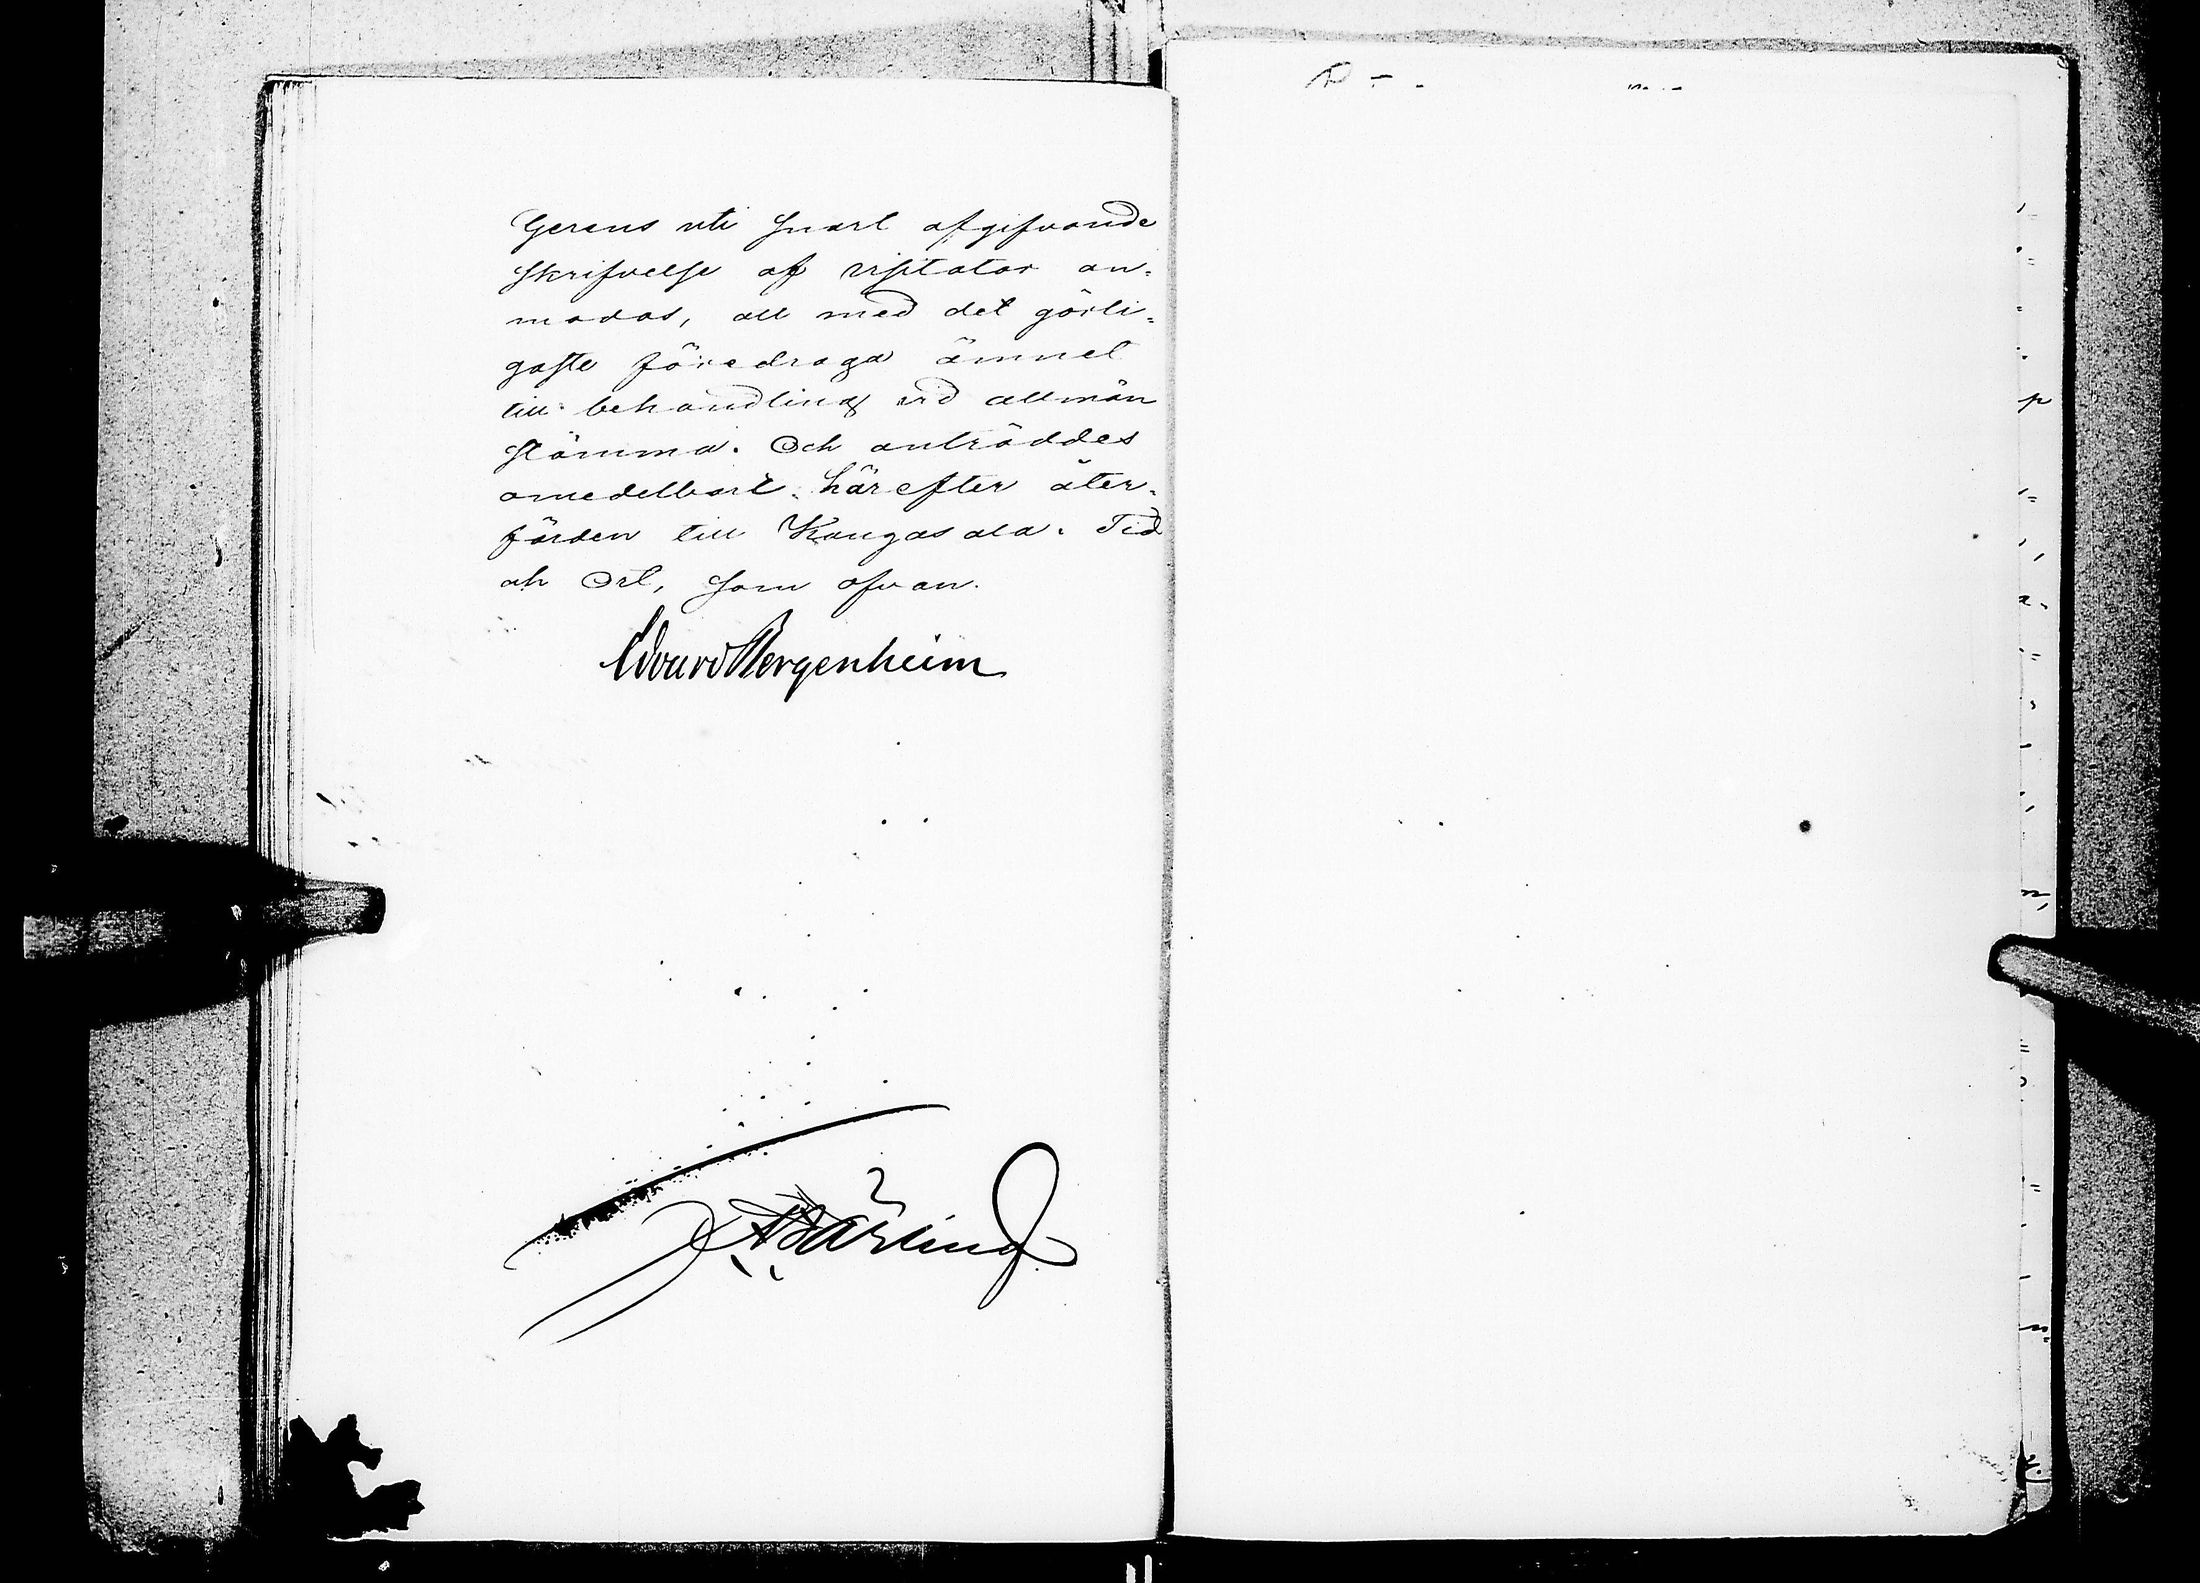 gerens uti snart afgifvande
skrifvelse af visitator an=
modas, att med det görli=
gaste föredraga ämnet
till behandling vid allmän
stämma. Och anträddes
omedelbart härefter åter=
färden till Kangasala. Tid
och Ort, som ofvan.
Edvard Bergenheim